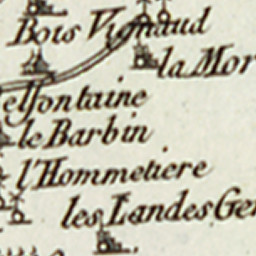 Bois Vignaud
la Mor
elfontaine
le Barbin
l'Hommetiere
les Landes Gen